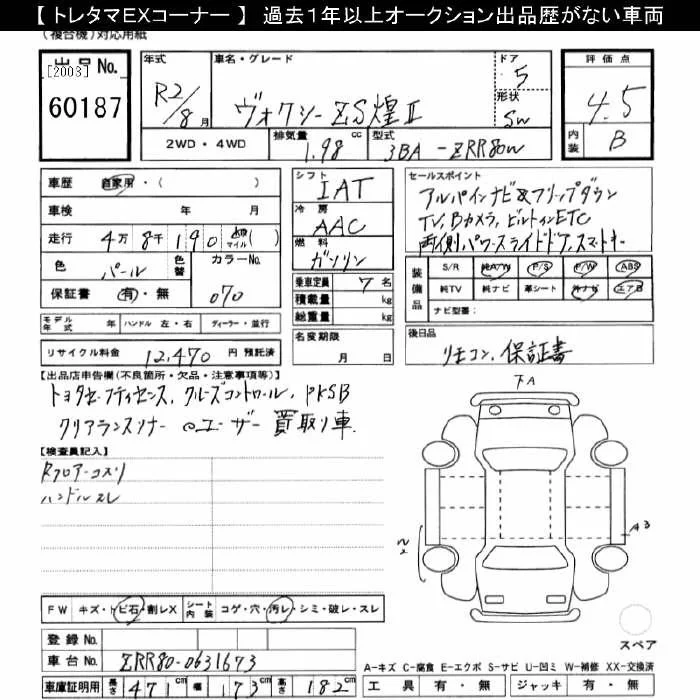 【 トレタマEXコーナー 】 過去1年以上オークション出品歴がない車両
(複合機)対応用紙
出品No.
[2003]
60187
年式
R2/8月
車名・グレード
ヴォクシー ZS煌Ⅱ
ドア
5
形状
SW
評価点
4.5
内装
B
2WD・4WD
排気量
1.98 cc
型式
3BA-ZRR80W
車歴 自家用・( )
車検 年 月
走行 4万8千190 km マイル( )
色 パール 色替
カラーNo.
070
保証書 有・無
シフト
IAT
冷房
AAC
燃料
ガソリン
乗車定員 7名
積載量 kg
総重量 kg
セールスポイント
アルパインナビ&フリップダウン
TV, Bカメラ, ビルトインETC
両側パワースライドドア,スマートキー
装備品
S/R 純A/W P/S P/W ABS
純TV 純ナビ 革シート 外ナビ エアB
ナビ型番:
モデル年式 年 ハンドル 左・右 ディーラー・並行
リサイクル料金 12,470 円 預託済
名変期限
月 日
後日品
リモコン, 保証書
【出品店申告欄(不良箇所・欠品・注意事項等)】
トヨタセーフティセンス, クルーズコントロール, PKSB
クリアランスソナー ◎ユーザー買取り車
【検査員記入】
Rフロアーコスリ
ハンドルスレ
下A
A3
FW キズ・トビ石・割レX シート内装 コゲ・穴・汚レ・シミ・破レ・スレ
スペア
登録No.
車台No. ZRR80-0631673
車庫証明用 長さ 471 幅 173 高さ 182
A-キズ C-腐食 E-エクボ S-サビ U-凹ミ W-補修 XX-交換済
工具 有・無 ジャッキ 有・無